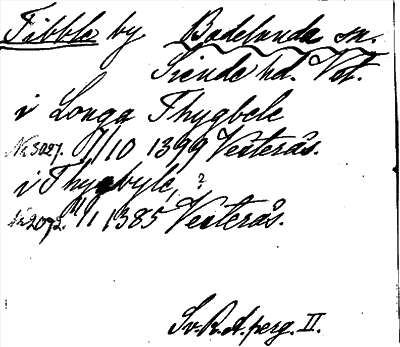 Tibble by Badelunda sn.
Siende hd. Vst.
i Longa Thygbele
Nr 3027. 9/10 1399 Vesterås.
i Thygbyle, ?
Nr 2092. 11/1 1385 Vesterås.
Sv. R. A. perg. II.